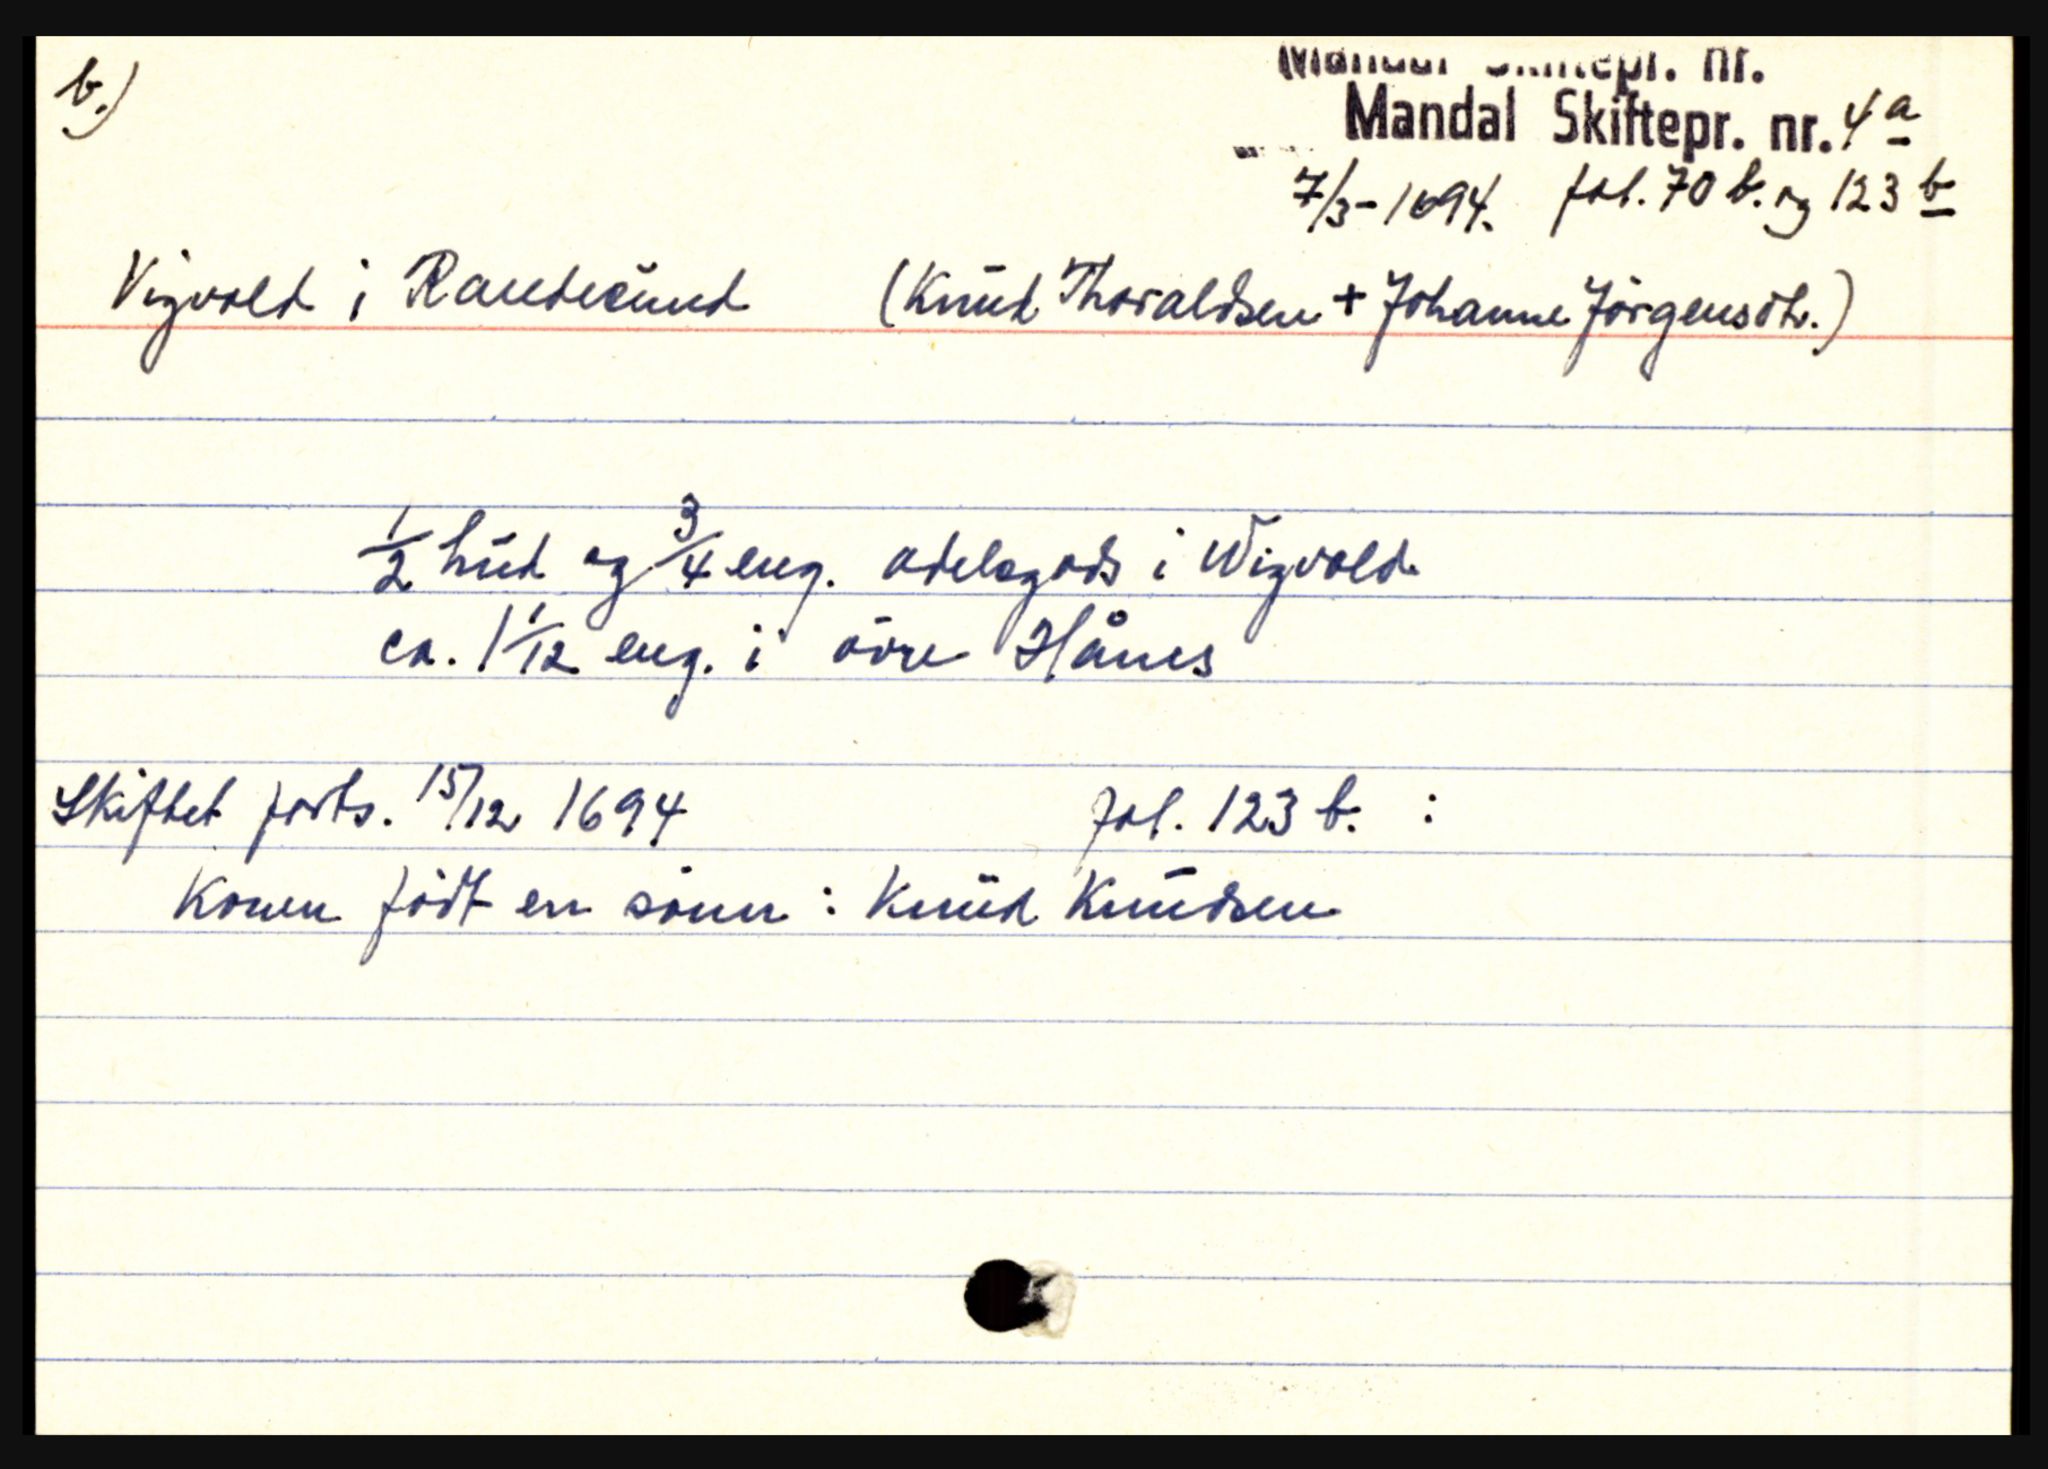 b.)
Mandal Skiftepr. nr.
Mandal Skiftepr. nr. 4 a
7/3 - 1694. fol. 70 b. og 123 b
Vigvold i Randesund (Knud Thoraldsen + Johanne Jörgensdtr.)
1/2 hud og 3/4 eng. odelsgods i Wigvold.
ca. 1 1/12 eng. i övre Hånes
Skiftet forts. 15/12 1694 fol. 123 b. :
Konen födt en sönn : Knud Knudsen